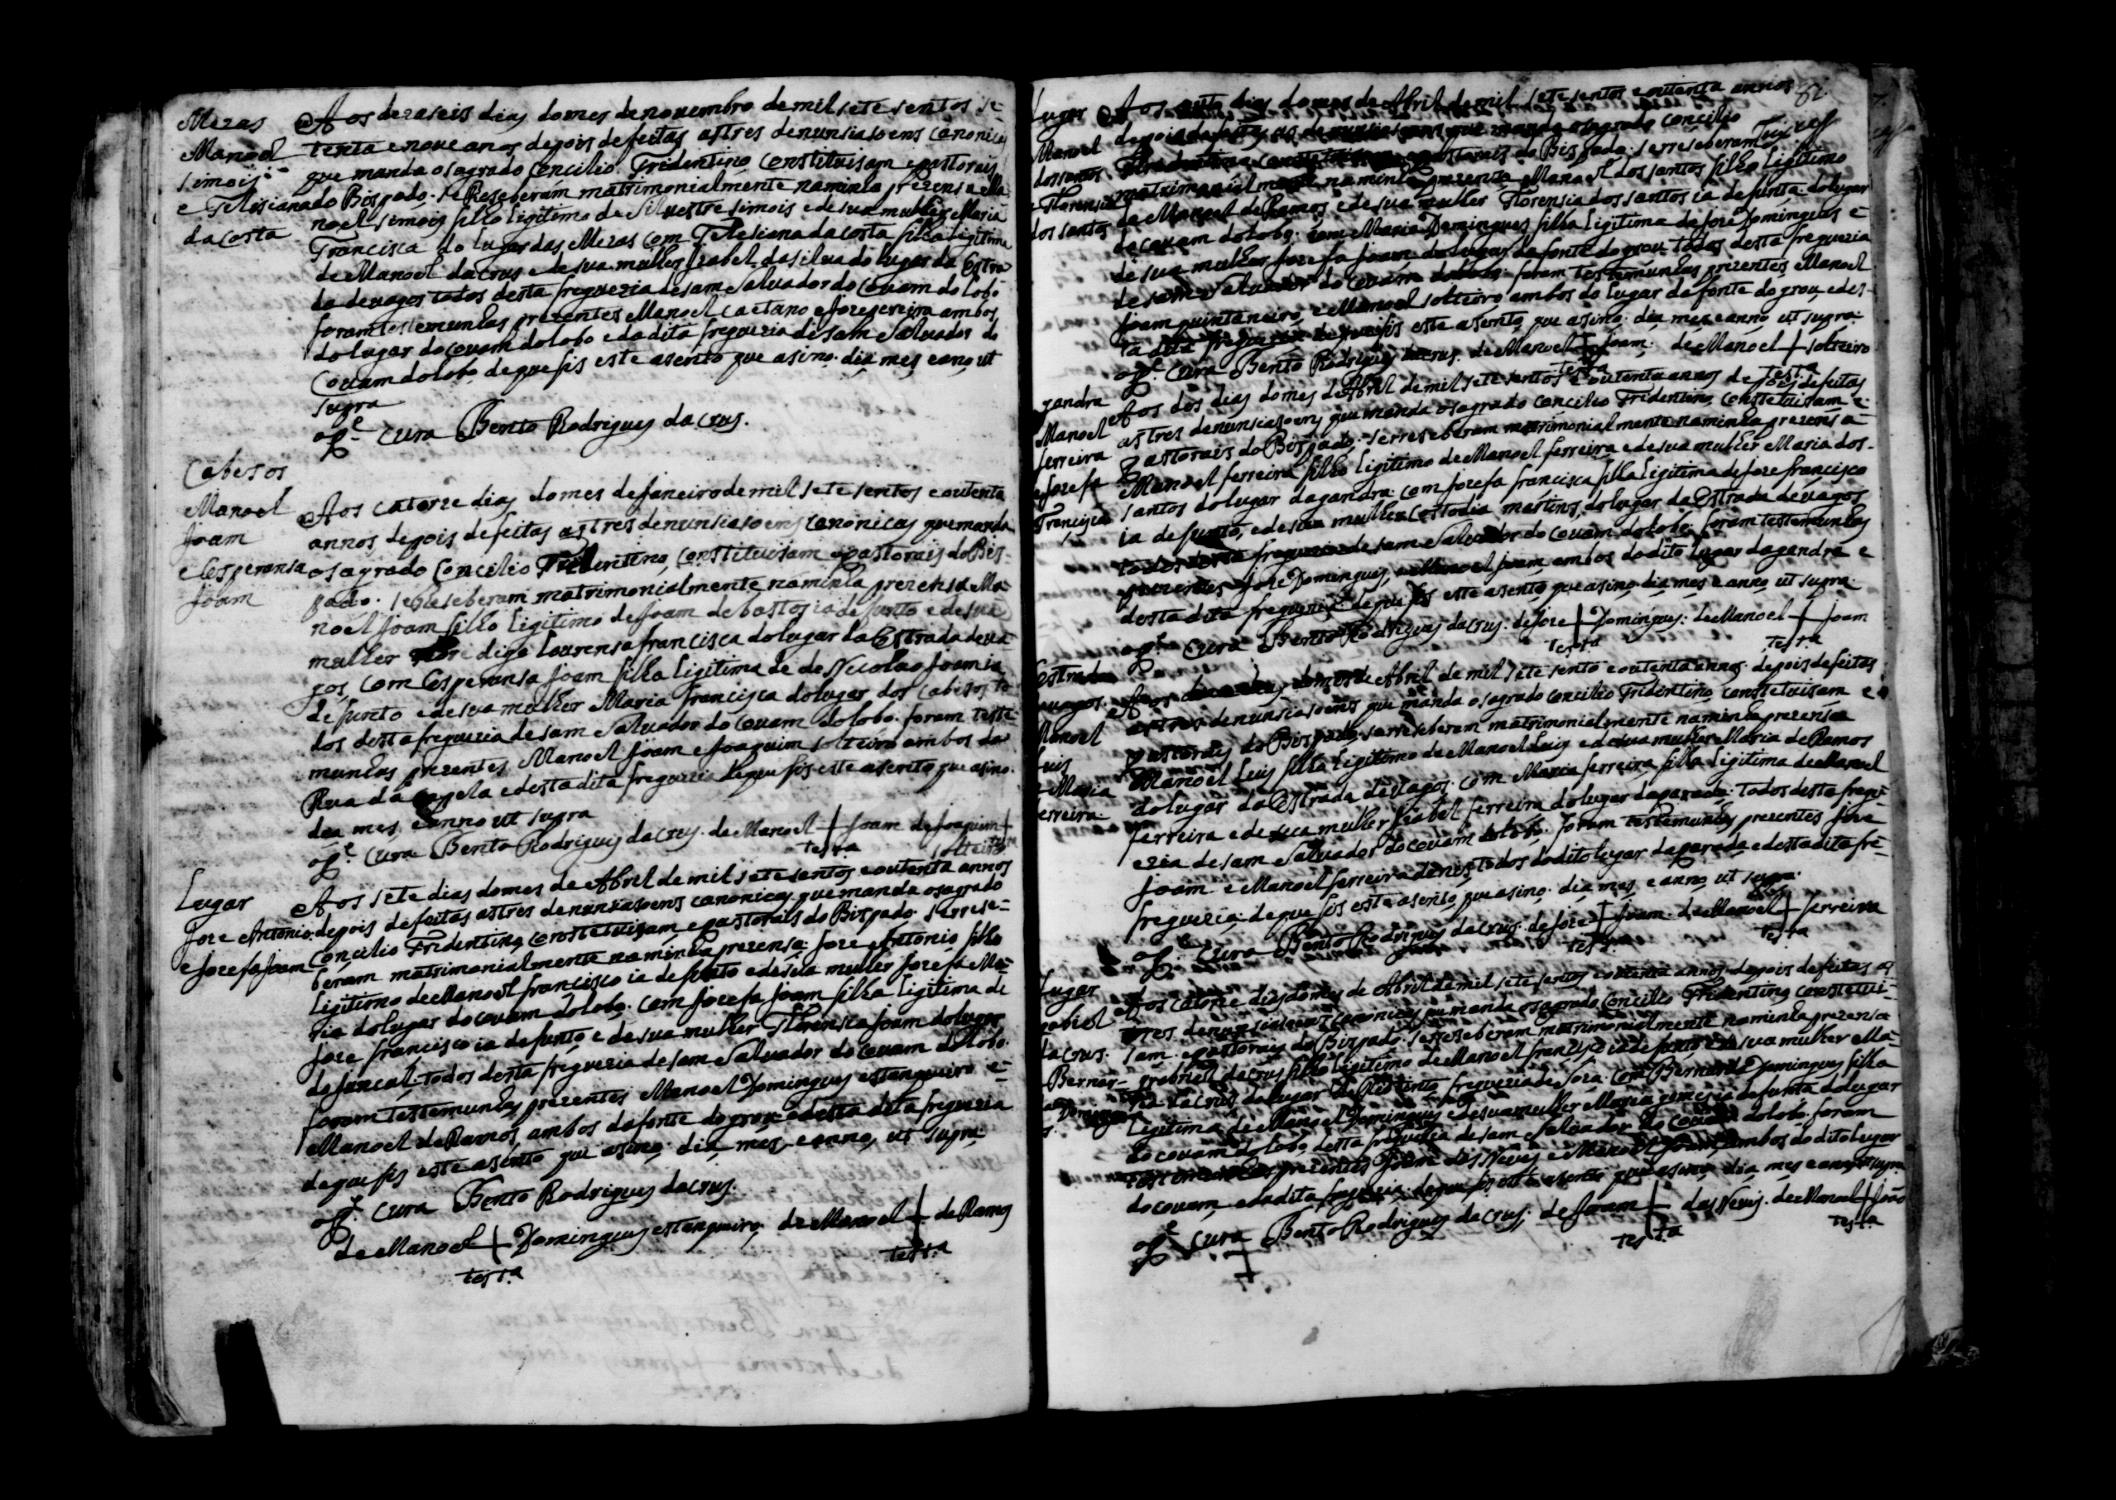 Mezas
Manoel
simois
e Telisiana
da Costa
Aos dezaseis dias do mes de novembro de mil sete sentos se-
tenta e nove anos depois de feitas as tres denunsiasoens canonicas
que manda o sagrado Concilio Tridentino Constituisam e pastorais
do Bispado. se Reseberam matrimonialmente na minha prezensa Ma-
noel simois filho ligitimo de Silvestre simois e de sua mulher Maria
Francisca do lugar das Mezas com Telesiana da costa filha ligitima
de Manoel da Crus e de sua mulher Izabel da silva do lugar da Estra
da de vagos todos desta freguezia de sam Salvador do Covam do lobo
foram testemunhas prezentes Manoel Caetano e Joze pereira ambos
do lugar do covam do lobo e da dita freguezia de sam Salvador do
Covam do lobo, de que fis este asento que asino. dia mes e ano ut
supra
o Pe. Cura Bento Rodrigues da Crus.
Cabesos
Manoel
Joam
e Esperansa
Joam
Aos catorze dias do mes de Janeiro de mil sete sentos e outenta
annos depois de feitas as tres denunsiasoens canonicas que manda
o sagrado Concilio Tridentino, Constituisam e pastorais do Bis-
pado. se Reseberam matrimonialmente na minha prezensa Ma-
noel Joam filho ligitimo de Joam de bastos ia defunto e de sua
mulher digo Lourensa francisca do lugar da Estrada de va-
gos, com Esperansa Joam filha ligitima de de Nicolao Joam ia
defunto e de sua mulher Maria francisca do lugar dos Cabesos to
dos desta freguezia de sam Salvador do Covam do lobo. foram teste
munhas prezentes Manoel Joam e Joaquim solteiro ambos da
Rua da Capela e desta dita freguezia de que fis este asento que asino.
dia mes e anno ut supra
o Pe. Cura Bento Rodrigues da Crus. de Manoel + Joam de Joaquim +
testa solteiro
Lugar
Joze Antonio
e Jozefa Joam
Aos sete dias do mes de Abril de mil sete sentos e outenta annos
depois de feitas as tres denunsiasoens canonicas que manda o sagrado
Concilio Tridentino, Constetuisam e pastorais do Bispado. se rrese-
beram matrimonialmente na minha prezensa. Joze Antonio filho
ligitimo de Manoel francisco ia defunto e de sua mulher Jozefa Ma-
ria do lugar do covam do lobo. com Jozefa Joam filha ligitima de
Joze francisco ia defunto e de sua mulher Florensia Joam do lugar
de funcal. todos desta freguezia de sam Salvador do Covam do lobo.
foram testemunhas prezentes Manoel Domingues estanqueiro e-
Manoel de Ramos, ambos da fonte do grou e desta dita freguezia
de que fis este asento que asino. dia, mes, e anno, ut supra
o Pe. Cura Bento Rodrigues da Crus.
de Manoel + Domingues estanqueiro. de Manoel + de Ramos
testa testa
82.
Lugar
Manoel
dos santos
e Florensia
dos santos
Aos outo dias do mes de Abril de mil sete sentos e outenta annos
depois de feitas as denunsiasoens que manda o sagrado Concilio
Tridentino Constituisam e pastorais do Bispado. se rreseberam
matrimonialmente na minha prezensa Manoel dos santos filho ligitimo
de Manoel de Ramos e de sua mulher Florensia dos santos ia defunta do lugar
do covam do lobo. com Maria Domingues filha ligitima de Joze Domingues e
de sua mulher Jozefa Joam do lugar da fonte do grou todos desta freguezia
de sam Salvador do covam do lobo. foram testemunhas prezentes Manoel
Joam quintaneiro e Manoel solteiro ambos do lugar da fonte do grou, e des-
ta dita freguezia de que fis este asento que asino. dia mes e anno ut supra.
o Pe. Cura Bento Rodrigues da Crus. de Manoel + Joam. de Manoel + solteiro
testa testa
gandra
Manoel
ferreira
e Jozefa
Francisca
Aos dos dias do mes de Abril de mil sete sentos e outenta annos depois de feitas
as tres denunsiasoens que manda o sagrado concilio Tridentino, Constetuisam e
Pastorais do Bispado. se rreseberam matrimonialmente na minha prezensa
Manoel ferreira filho ligitimo de Manoel ferreira e de sua mulher Maria dos-
santos do lugar da gandra. com Jozefa francisca filha ligitima de Joze francisco
ia defunto, e de sua mulher Custodia martins, do lugar da Estrada de vagos
todos desta freguezia de sam Salvador do covam do lobo. foram testemunhas
prezentes Joze Domingues, e Manoel Joam ambos do dito lugar da gandra e
desta dita freguezia de que fis este asento que asino, dia mes e anno ut supra.
o Pe. Cura Bento Rodrigues da Crus. de Joze + Domingues. de Manoel + Joam
testa testa
Estrada
vagos.
Manoel
Luis
e Maria
ferreira.
Aos dias do mes de Abril de mil sete sento e outenta annos. depois de feitas
as tres denunsiasoens que manda o sagrado concilio Tridentino, constetuisam e
pastorais do Bispado, se rreseberam matrimonialmente na minha prezensa
Manoel Luis filho ligitimo de Manoel Luis e de sua mulher Maria de Ramos
do lugar da Estrada de Vagos. com Maria ferreira filha ligitima de Manoel
ferreira e de sua mulher Izabel ferreira do lugar da parada. todos desta fregu-
ezia de sam Salvador do covam do lobo. foram testemunhas prezentes Joze
Joam e Manoel ferreira denis, todos do dito lugar da parada e desta dita fre-
freguezia. de que fis este asento, que asino. dia, mes, e anno, ut supra.
o Pe. Cura Bento Rodrigues da Crus. de Joze + Joam. de Manoel + ferreira
testa testa
Lugar
gabriel
da Crus.
Bernar-
Domingues
Aos catorze dias do mes de Abril de mil sete sentos e outenta annos. depois de feitas as
tres denunsiasoens canonicas que manda o sagrado Concilio Tridentino constetui-
sam e pastorais do Bispado. se rreseberam matrimonialmente na minha prezensa
grabriel da crus filho ligitimo de Manoel francisco ia defunto e de sua mulher Ma-
ria da Crus do lugar de freguezia de Soza. com Bernarda Domingues filha
ligitima de Manoel Domingues e de sua mulher Maria ia defunta do lugar
do covam do lobo, desta freguezia de sam Salvador do Covam do lobo. foram
testemunhas prezentes Joam das Neves e Manoel Joam, ambos do dito lugar
do covam, e da dita freguezia. de que fis este asento que asino, dia, mes e anno ut supra.
o Pe. Cura Bento Rodrigues da Crus. de Joam + das Neves. de Manoel + João
testa testa